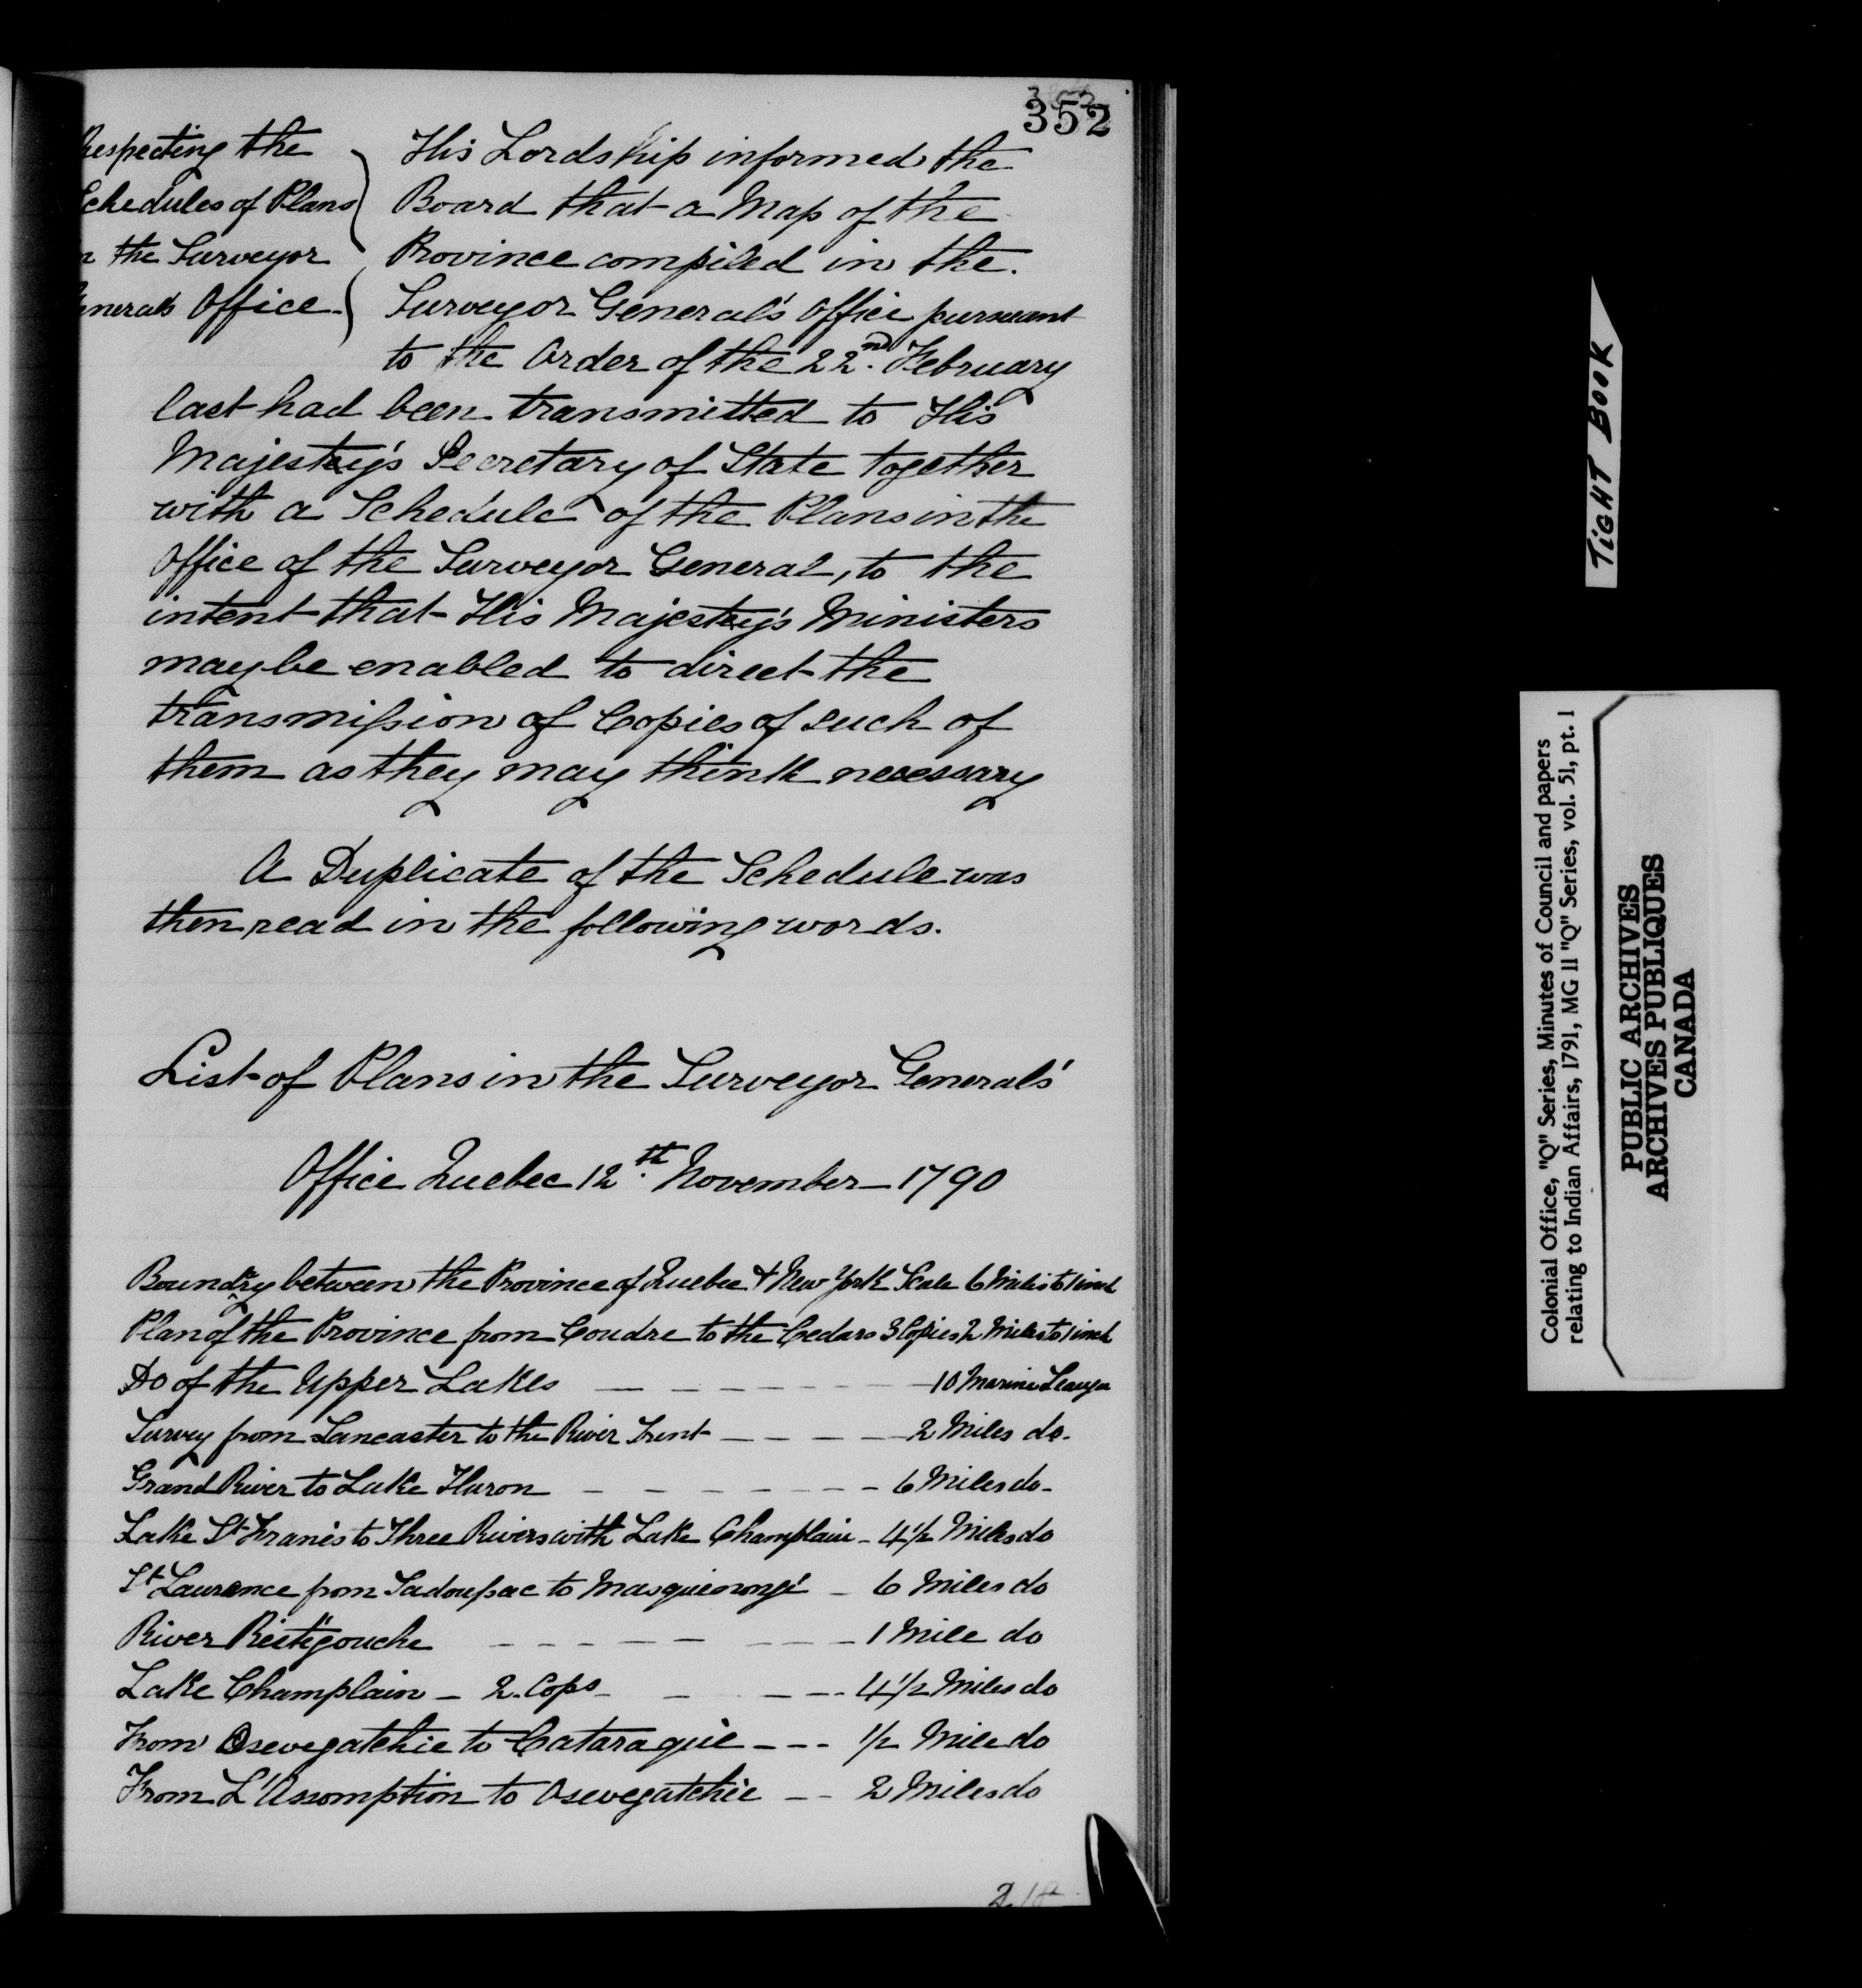 352
Respecting the
Schedules of Plans
n the Surveyor
enerals Office
His Lordship informed the
Board that a Map of the
Province compiled in the.
Surveyor General's Office pursuant
to the Order of the 22nd. February
last had been transmitted to His
Majesty's Secretary of State together
with a Schedule of the Plans in the
Office of the Surveyor General, to the
intent that His Majesty's Ministers
may be enabled to direct the
transmission of Copies of such of
them as they may think necessary
A Duplicate of the Schedule was
then read in the following words.
List of Plans in the Surveyor Generals'
Office Quebec 12th. November 1790
Boundry between the Province of Quebec & New York Scale 6 Miles to 1 inch
Plan of the Province from Coudre to the Cedars 3 Copies 2 Miles to 1 inch
Do of the Upper Lakes — — — — — 10 Marine Leagues
Survey from Lancaster to the River Trent — — — — 2 Miles do.
Grand River to Lake Huron — — — — — — — 6 Miles do-
Lake St Franis to Three Rivers with Lake Champlain - 4½ Miles do
St Laurence from Sadoussac to Masquinongé - 6 Miles do
River Restigouche — — — — — — — — 1 Mile do
Lake Champlain - 2. Cops - — — — 4½ Miles do
From Osewegatchie to Cataraquie - - - ½ Mile do
From L'Assomption to Osewegatchie - - 2 Miles do
TIGHT BOOK
Colonial Office, "Q" Series, Minutes of Council and papers
relating to Indian Affairs, 1791, MG 11 "Q" Series, vol. 51, pt. 1
PUBLIC ARCHIVES
ARCHIVES PUBLIQUES
CANADA